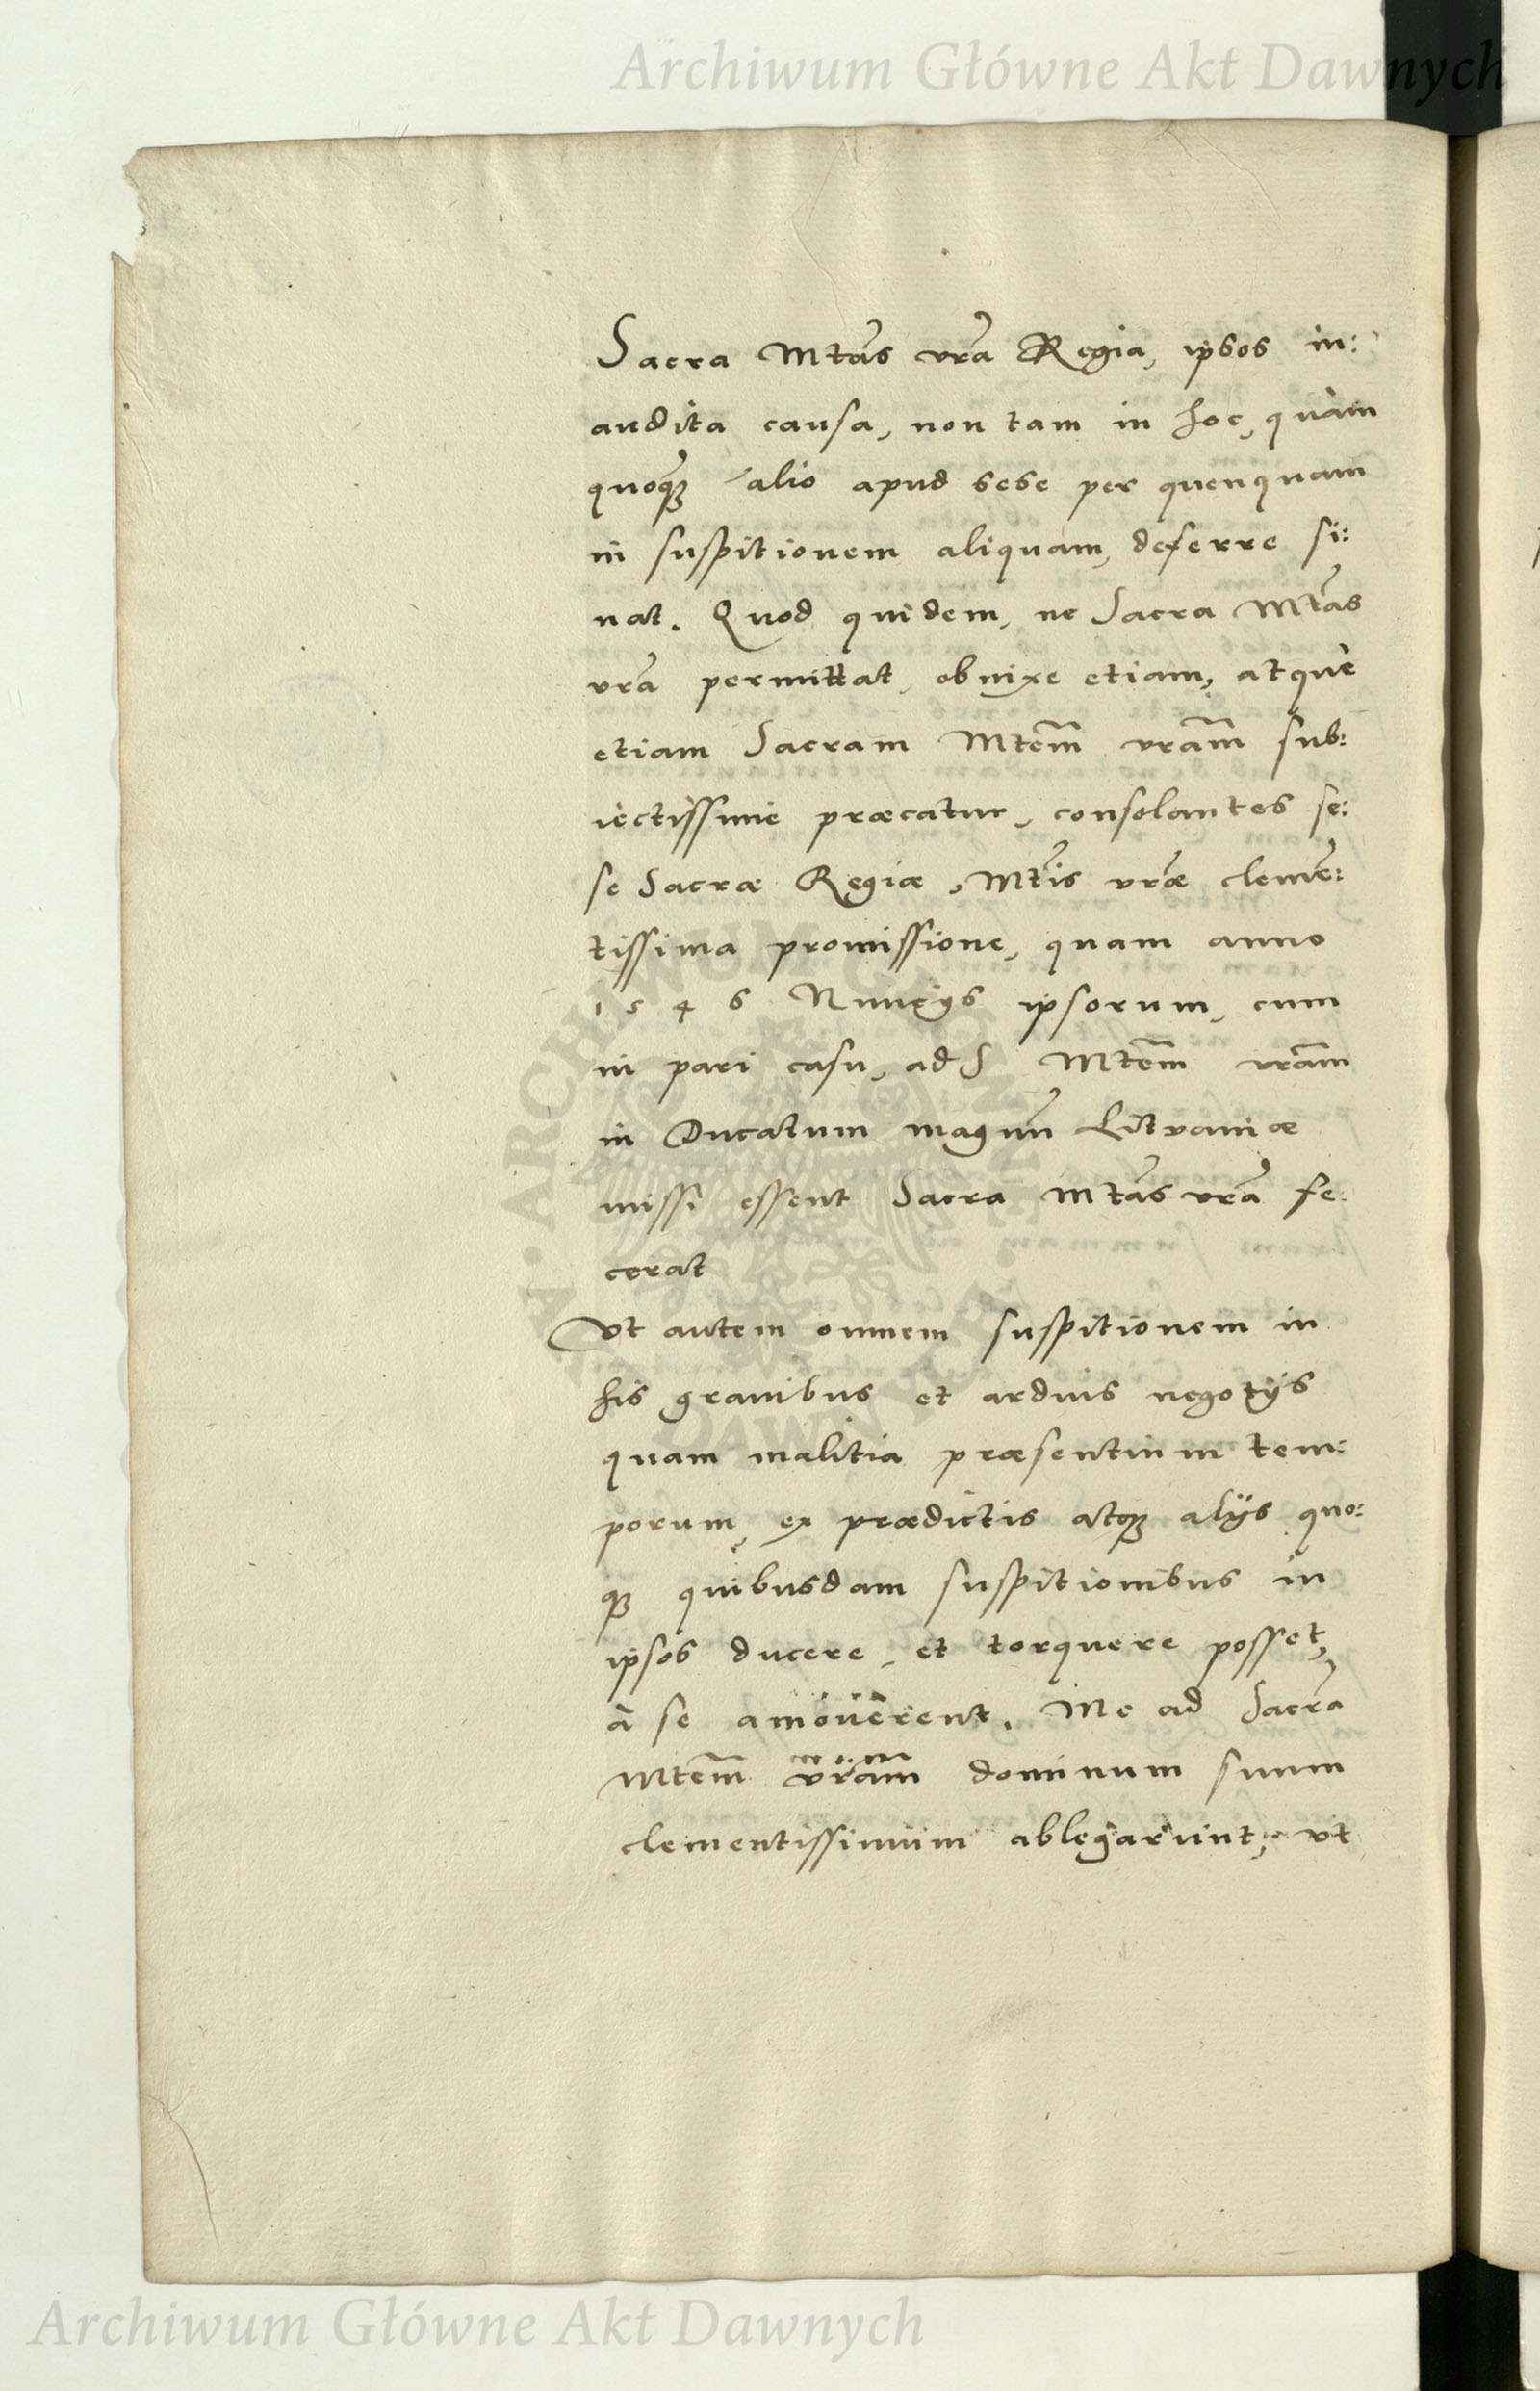 Archiwum Główne Akt Dawnych
Sacra Mtãs vrã Regia, ipsos in:
audita causa, non tam in hoc, quàm
quoq3 alio apud sese per quenquam
in suspitionem aliquam, deferre si:
nat. Quod quidem, ne Sacra Mtãs
vrã permittat, obnixe etiam, atque
etiam Sacram Mtem̃ vram̃ sub:
iectissime præcatur, consolantes se:
se Sacræ Regiæ, Mtis̃ vræ̃ clemẽ:
tissima promissione, quam anno
1546 Nuncijs ipsorum, cum
in pari casu, ad S Mtem̃ vram̃
in Ducatum magnũ Lituaniæ
missi essent Sacra Mtãs vrã fe:
cerat
Vt autem omnem suspitionem in
his grauibus et arduis negotijs
quam malitia præsentium tem:
porum, ex prædictis atq3 alijs quo:
q3 quibusdam suspitionibus in
ipsos ducere, et torquere posset,
à se amouerent. Me ad Sacrã
Mtem̃ vram̃ dominum suum
clementissimum ablegarunt, vt
ARCHIWUM GŁÓWNE AKT DAWNYCH
Archiwum Główne Akt Dawnych